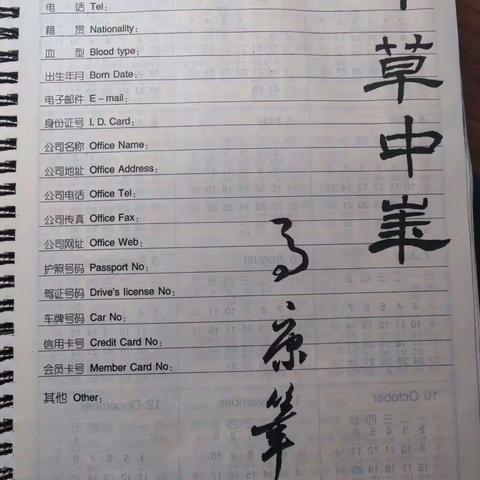 电 话 Tel:
籍 贯 Nationality:
血 型 Blood type:
出生年月 Born Date:
电子邮件 E-mail:
身份证号 I. D. Card:
公司名称 Office Name:
公司地址 Office Address:
公司电话 Office Tel:
公司传真 Office Fax:
公司网址 Office Web:
护照号码 Passport No:
驾证号码 Drive's license No:
车牌号码 Car No:
信用卡号 Credit Card No:
会员卡号 Member Card No:
其他 Other:
草中